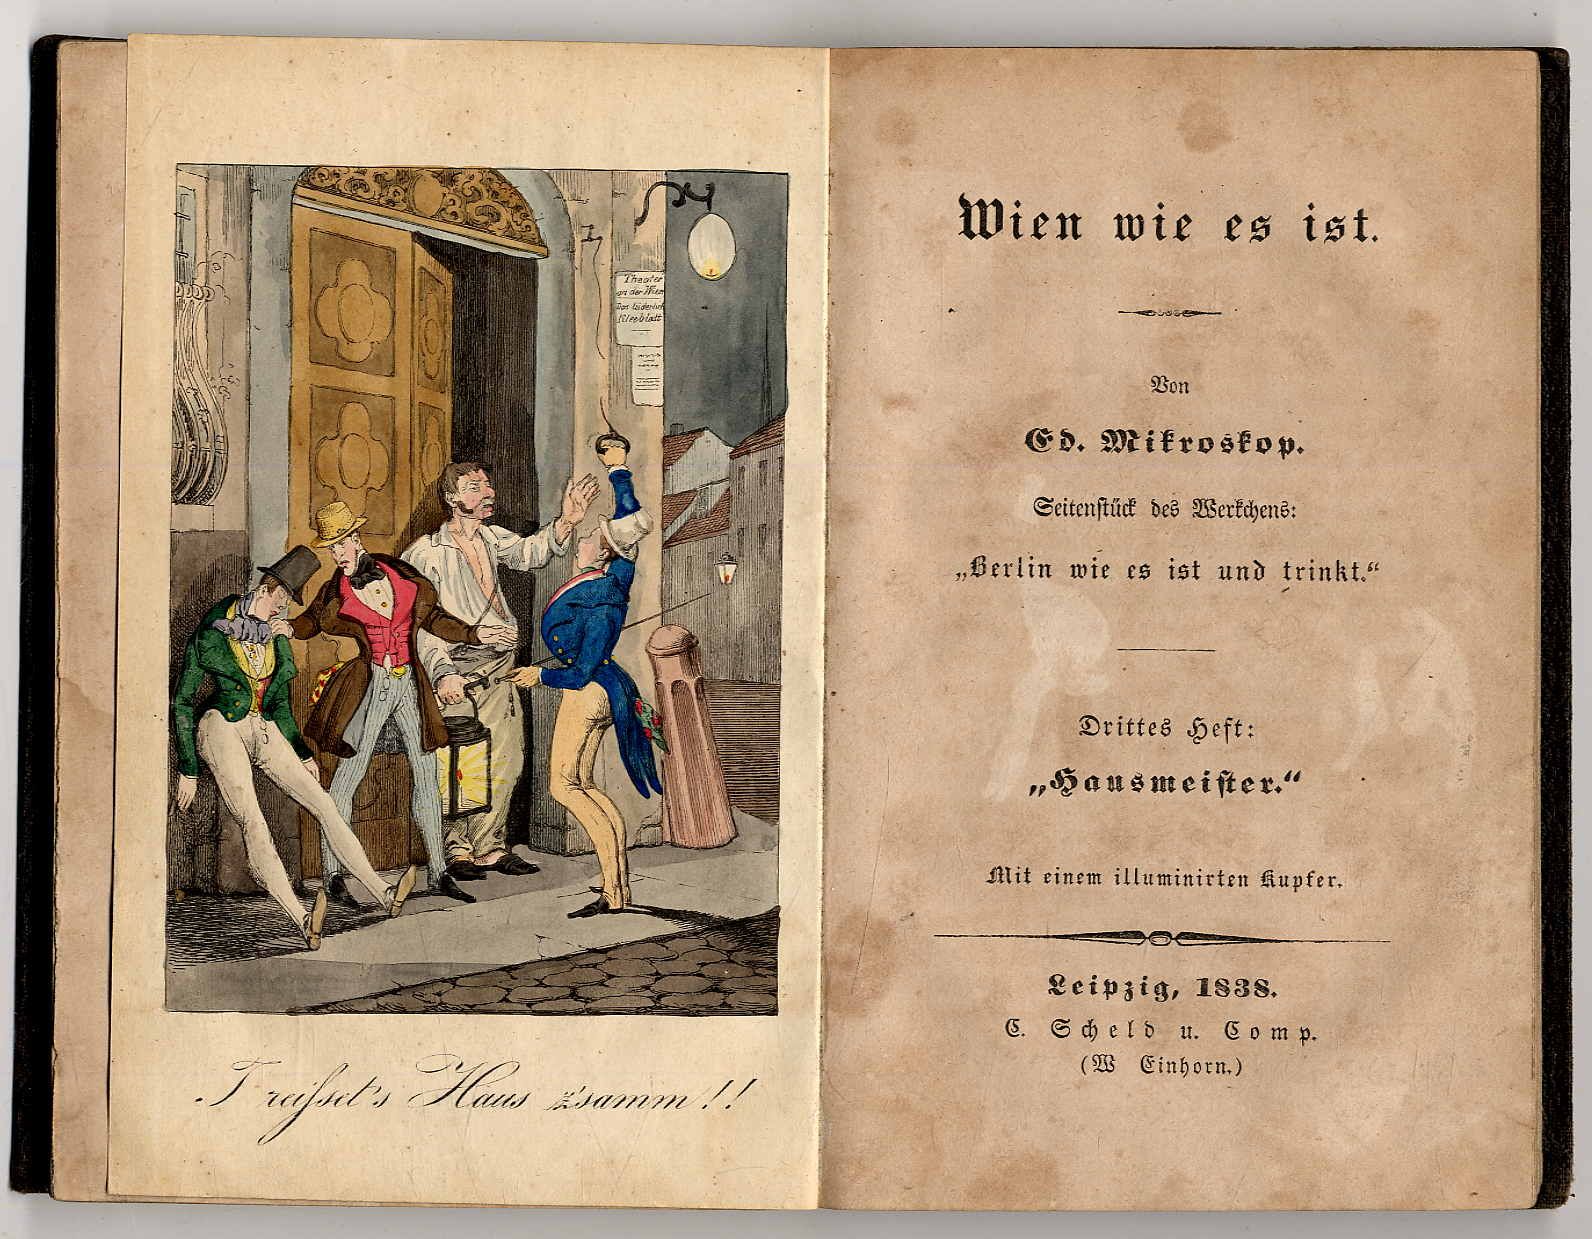 Theater
an der Wien
Das liederlich
Kleeblatt
I reißset's Haus z'samm!!
Wien wie es ist.
Von
Ed. Mikroskop.
Seitenstück des Werkchens:
„Berlin wie es ist und trinkt.“
Drittes Heft:
„Hausmeister.“
Mit einem illuminirten Kupfer.
Leipzig, 1838.
C. Scheld u. Comp.
(W Einhorn.)